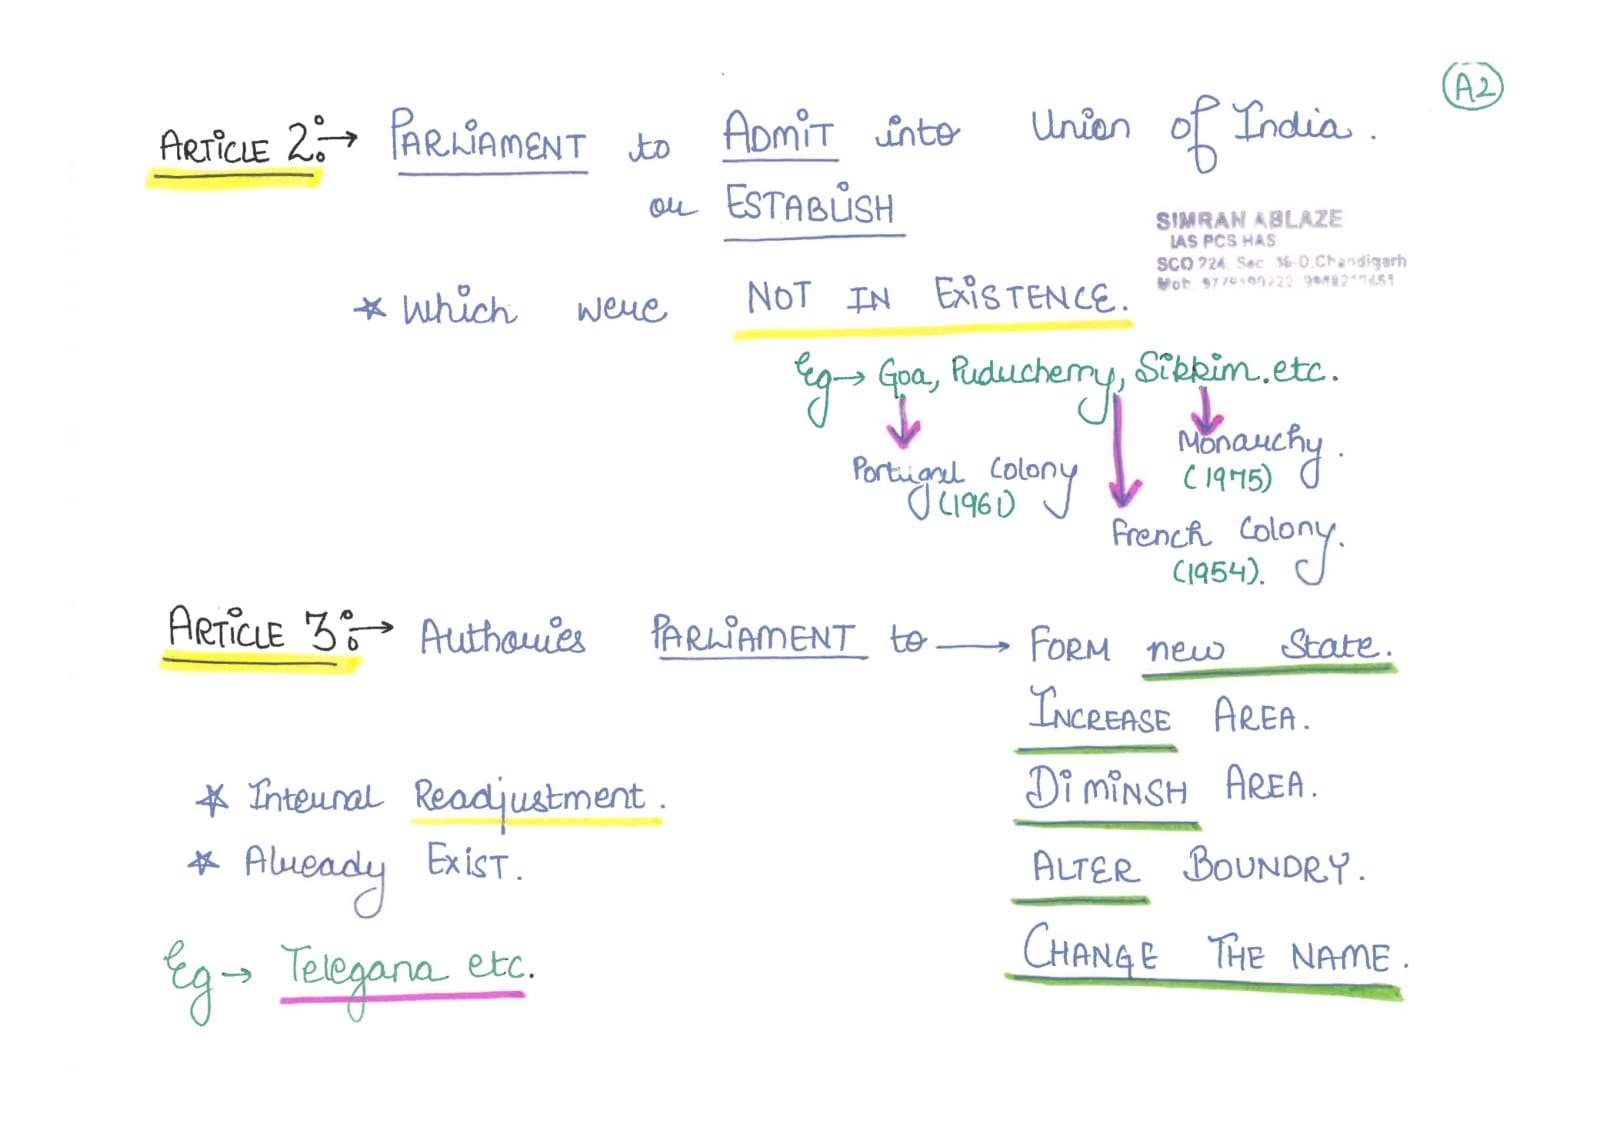 A2
ARTICLE 2:→ PARLIAMENT to ADMIT into Union of India.
or ESTABLISH
SIMRAN ABLAZE
IAS PCS HAS
SCO 224, Sec. 36-D, Chandigarh
Mob.
* Which were NOT IN EXISTENCE.
Eg→ Goa, Puducherry, Sikkim. etc.
Monarchy.
(1975)
Colony
(1961)
French Colony.
(1954).
ARTICLE 3:→ Authories PARLIAMENT to → FORM new State.
INCREASE AREA.
DIMINSH AREA.
* Internal Readjustment.
* Already EXIST.
ALTER BOUNDRY.
Eg→ Telegana etc.
CHANGE THE NAME.